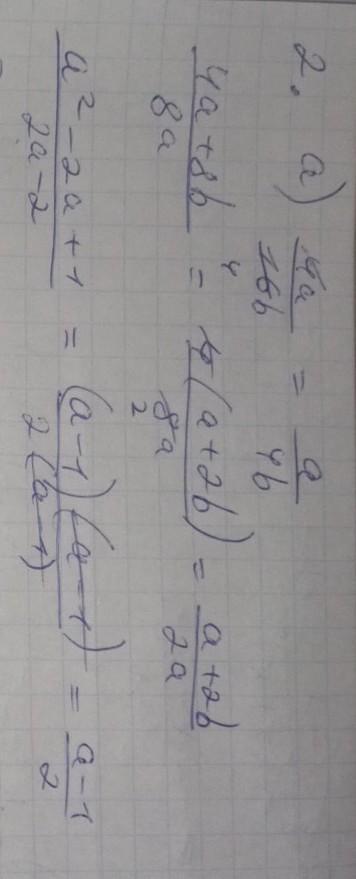 2. a) 4a/16b = a/4b
4a+8b/8a = 4(a+2b)/8a = a+2b/2a
a²-2a+1/2a-2 = (a-1)(a-1)/2(a-1) = a-1/2